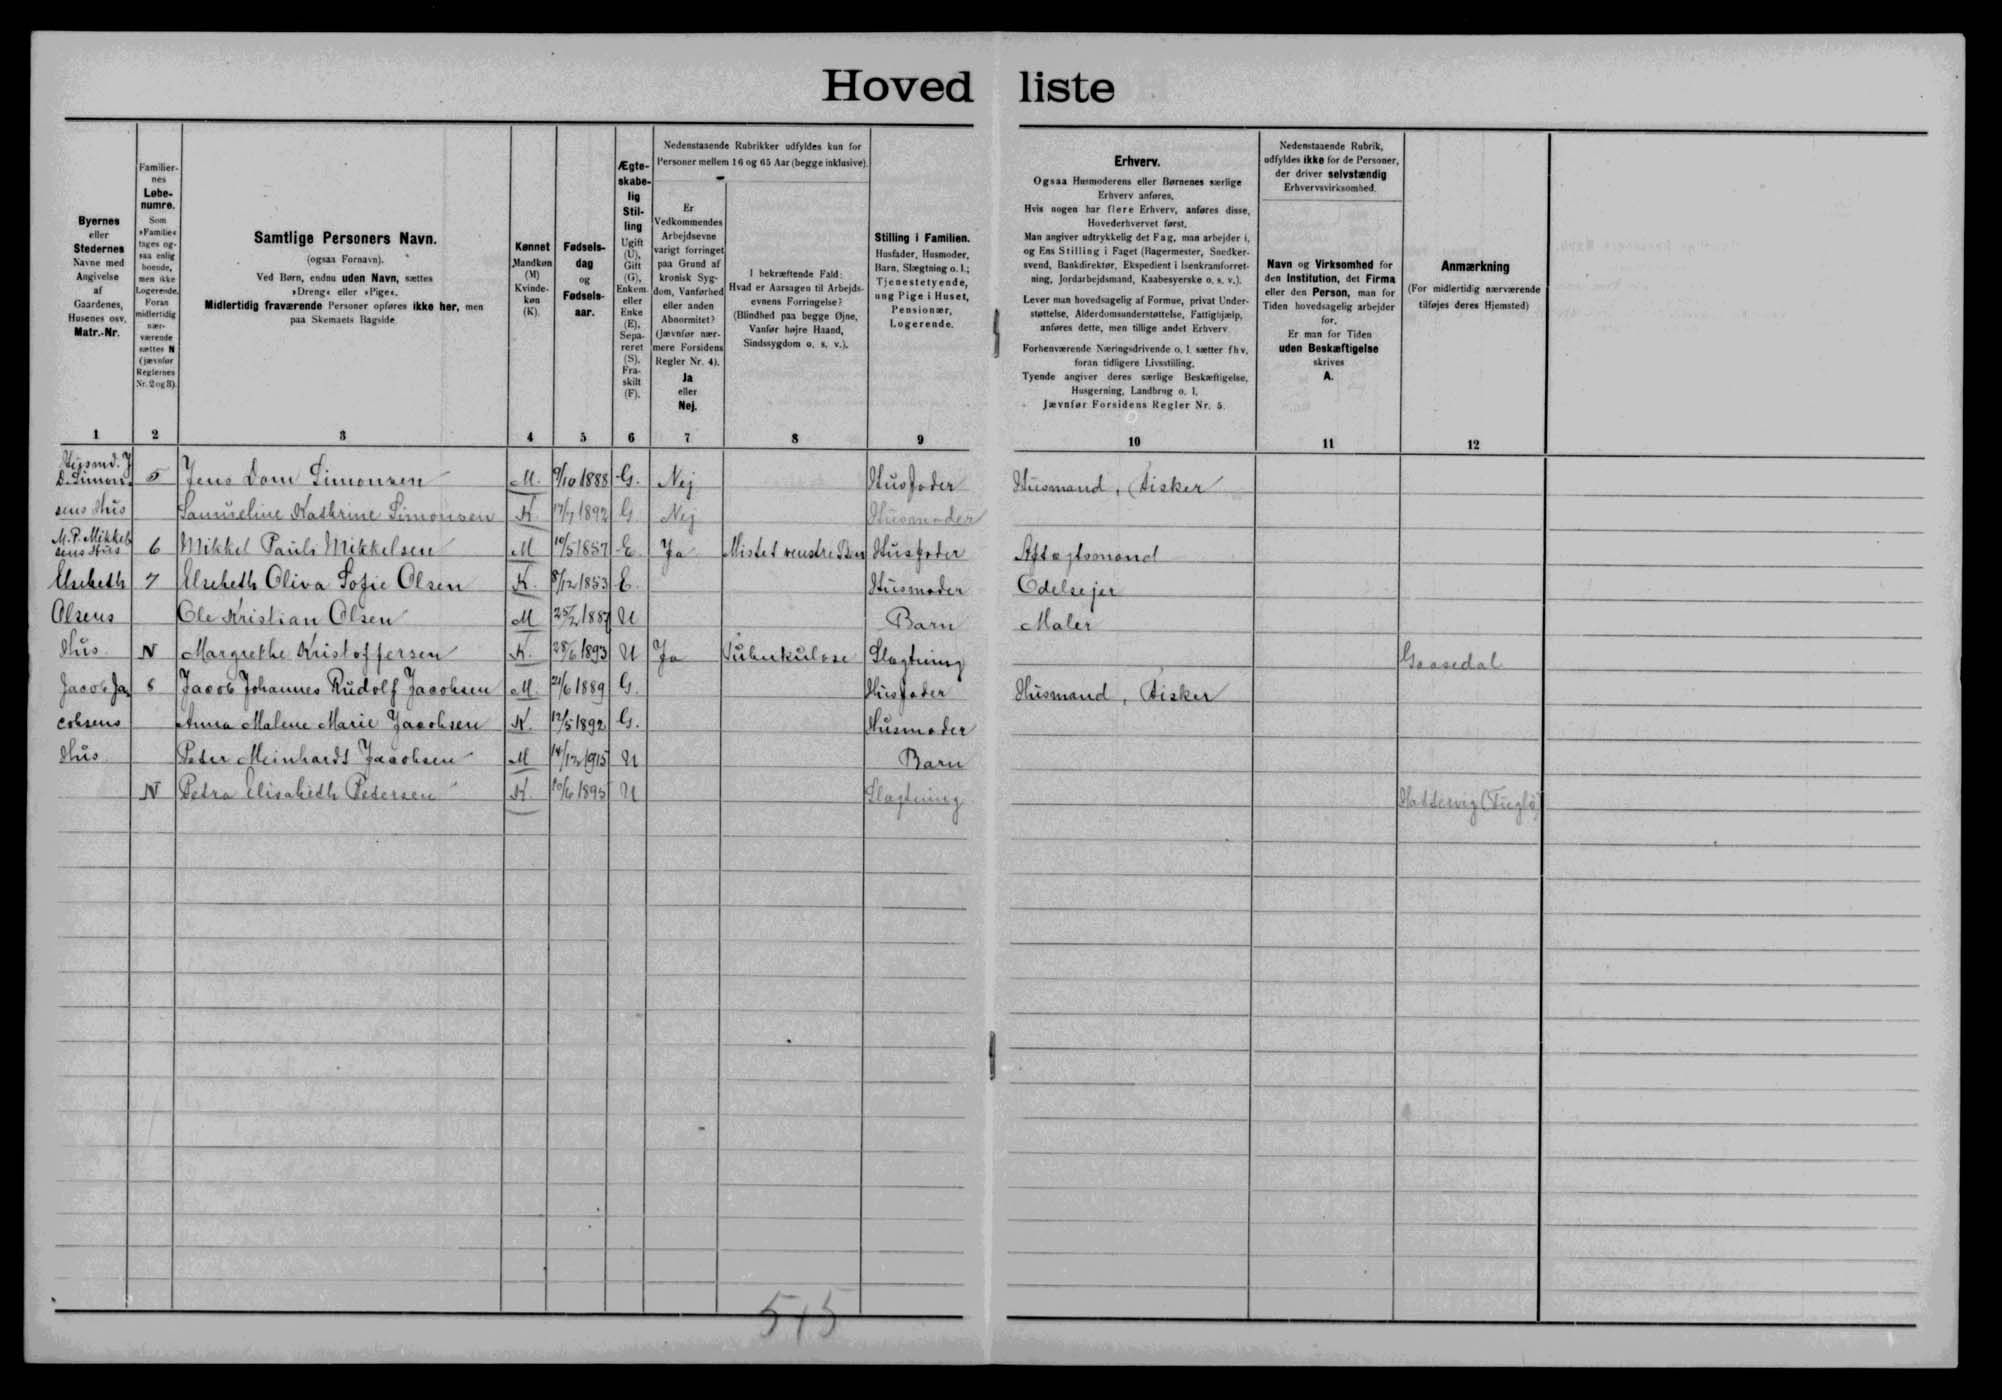 Hoved liste
Byernes
eller
Stedernes
Navne med
Angivelse
af
Gaardenes,
Husenes osv.
Matr.-Nr.
Familier-
nes
Løbe-
numre.
Som
»Familie«
tages og-
saa enlig
boende,
men ikke
Logerende.
Foran
midlertidig
nær-
værende
sættes N
(jævnfør
Reglernes
Nr. 2 og 3).
Samtlige Personers Navn.
(ogsaa Fornavn).
Ved Børn, endnu uden Navn, sættes
»Dreng« eller »Pige«.
Midlertidig fraværende Personer opføres ikke her, men
paa Skemaets Bagside
Kønnet
Mandkøn
(M)
Kvinde-
køn
(K).
Fødsels-
dag
og
Fødsels-
aar.
Ægte-
skabe-
lig
Stil-
ling
Ugift
(U),
Gift
(G),
Enkem.
eller
Enke
(E),
Sepa-
reret
(S),
Fra-
skilt
(F).
Nedenstaaende Rubrikker udfyldes kun for
Personer mellem 16 og 65 Aar (begge inklusive).
Er
Vedkommendes
Arbejdsevne
varigt forringet
paa Grund af
kronisk Syg-
dom, Vanførhed
eller anden
Abnormitet?
(Jævnfør nær-
mere Forsidens
Regler Nr. 4).
Ja
eller
Nej.
I bekræftende Fald:
Hvad er Aarsagen til Arbejds-
evnens Forringelse?
(Blindhed paa begge Øjne,
Vanfør højre Haand,
Sindssygdom o. s. v.).
Stilling i Familien.
Husfader, Husmoder,
Barn, Slægtning o. l.;
Tjenestetyende,
ung Pige i Huset,
Pensionær,
Logerende.
Erhverv.
Ogsaa Husmoderens eller Børnenes særlige
Erhverv anføres.
Hvis nogen har flere Erhverv, anføres disse,
Hovederhvervet først.
Man angiver udtrykkelig det Fag, man arbejder i,
og Ens Stilling i Faget (Bagermester, Snedker-
svend, Bankdirektør, Ekspedient i Isenkramforret-
ning, Jordarbejdsmand, Kaabesyerske o. s. v.).
Lever man hovedsagelig af Formue, privat Under-
støttelse, Alderdomsunderstøttelse, Fattighjælp,
anføres dette, men tillige andet Erhverv
Forhenværende Næringsdrivende o. l. sætter fhv.
foran tidligere Livsstilling.
Tyende angiver deres særlige Beskæftigelse,
Husgerning, Landbrug o. l.
Jævnfør Forsidens Regler Nr. 5.
Nedenstaaende Rubrik,
udfyldes ikke for de Personer,
der driver selvstændig
Erhvervsvirksomhed.
Navn og Virksomhed for
den Institution, det Firma
eller den Person, man for
Tiden hovedsagelig arbejder
for.
Er man for Tiden
uden Beskæftigelse
skrives
A.
Anmærkning
(For midlertidig nærværende
tilføjes deres Hjemsted)
1 2 3 4 5 6 7 8 9 10 11 12
Husmd. J.
D. Simon- 5 Jens Dom Simonsen M. 9/10 1888 G. Nej Husfader Husmand, Fisker
sens Hus Samueline Kathrine Simonsen K 17/7 1892 G. Nej Husmoder
M. P. Mikkel-
sens Hus 6 Mikkel Pauli Mikkelsen M 10/5 1857 E. Ja Mistet venstre Ben Husfader Aftægtsmand
Elsebeth 7 Elsebeth Oliva Sofie Olsen K. 8/12 1853 E. Husmoder Odelsejer
Olsens Ole Kristian Olsen M 25/2 1887 U Barn Maler
Hus N Margrethe Kristoffersen K. 28/6 1893 U Ja Tuberkulose Slægtning Gaasedal
Jacob Ja 8 Jacob Johannes Rudolf Jacobsen M. 21/6 1889 G. Husfader Husmand, Fisker
cobsens Anna Malene Marie Jacobsen K. 12/5 1892 G. Husmoder
Hus Peter Meinhardt Jacobsen M 14/12 1915 U Barn
N Petra Elisabeth Pedersen K. 10/6 1895 U Slægtning Hattervig (Fuglø)
515